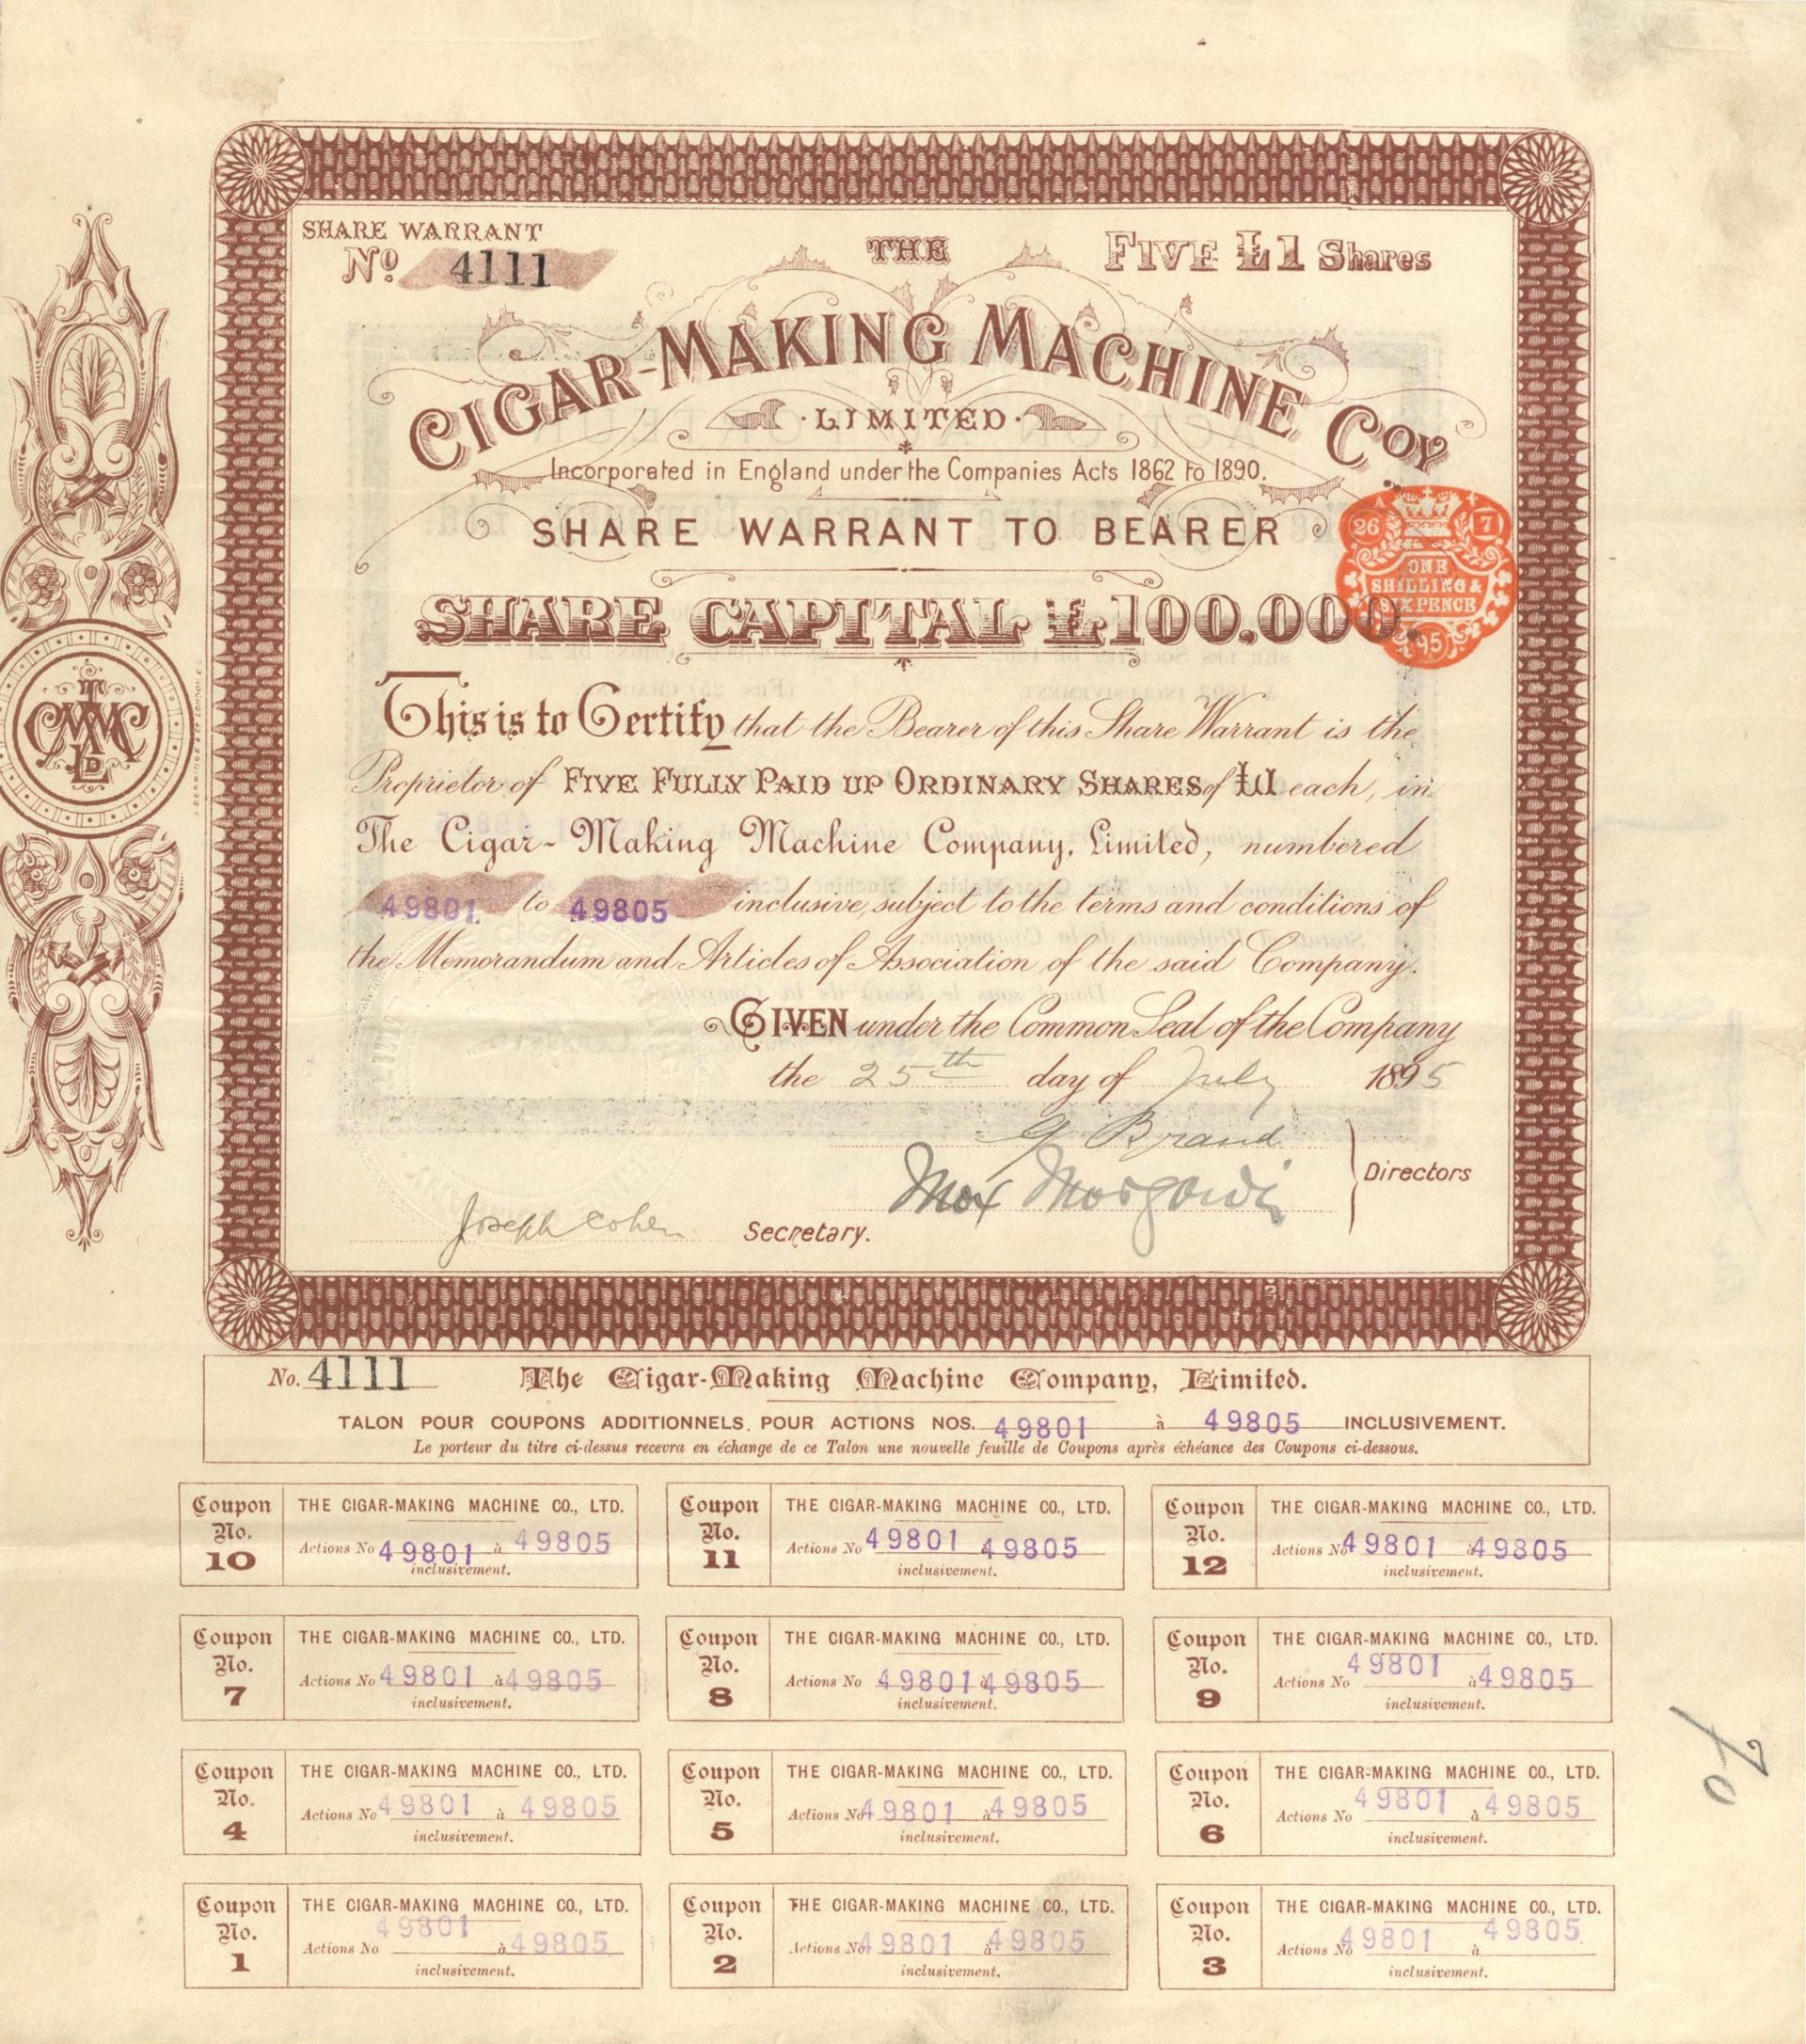 SHARE WARRANT
No. 4111
THE
FIVE £1 Shares
CIGAR-MAKING MACHINE COY
· LIMITED ·
Incorporated in England under the Companies Acts 1862 to 1890.
SHARE WARRANT TO BEARER
A
26 7
ONE
SHILLING &
SIX PENCE
95
SHARE CAPITAL £100.000.
This is to Certify that the Bearer of this Share Warrant is the
Proprietor of FIVE FULLY PAID UP ORDINARY SHARES of £1 each, in
The Cigar-Making Machine Company, Limited, numbered
49801 to 49805 inclusive, subject to the terms and conditions of
the Memorandum and Articles of Association of the said Company.
GIVEN under the Common Seal of the Company
the 25th day of July 1895
G Brand
Directors
Joseph Cohen Secretary.
No. 4111 The Cigar-Making Machine Company, Limited.
TALON POUR COUPONS ADDITIONNELS, POUR ACTIONS NOS. 49801 à 49805 INCLUSIVEMENT.
Le porteur du titre ci-dessus recevra en échange de ce Talon une nouvelle feuille de Coupons après échéance des Coupons ci-dessous.
Coupon No. 10
THE CIGAR-MAKING MACHINE CO., LTD.
Actions No 49801 à 49805
inclusivement.
Coupon No. 11
THE CIGAR-MAKING MACHINE CO., LTD.
Actions No 49801 49805
inclusivement.
Coupon No. 12
THE CIGAR-MAKING MACHINE CO., LTD.
Actions No 49801 à 49805
inclusivement.
Coupon No. 7
THE CIGAR-MAKING MACHINE CO., LTD.
Actions No 49801 à 49805
inclusivement.
Coupon No. 8
THE CIGAR-MAKING MACHINE CO., LTD.
Actions No 49801 à 49805
inclusivement.
Coupon No. 9
THE CIGAR-MAKING MACHINE CO., LTD.
Actions No 49801 à 49805
inclusivement.
Coupon No. 4
THE CIGAR-MAKING MACHINE CO., LTD.
Actions No 49801 à 49805
inclusivement.
Coupon No. 5
THE CIGAR-MAKING MACHINE CO., LTD.
Actions No 49801 à 49805
inclusivement.
Coupon No. 6
THE CIGAR-MAKING MACHINE CO., LTD.
Actions No 49801 à 49805
inclusivement.
Coupon No. 1
THE CIGAR-MAKING MACHINE CO., LTD.
Actions No 49801 à 49805
inclusivement.
Coupon No. 2
THE CIGAR-MAKING MACHINE CO., LTD.
Actions No 49801 à 49805
inclusivement.
Coupon No. 3
THE CIGAR-MAKING MACHINE CO., LTD.
Actions No 49801 à 49805
inclusivement.
70